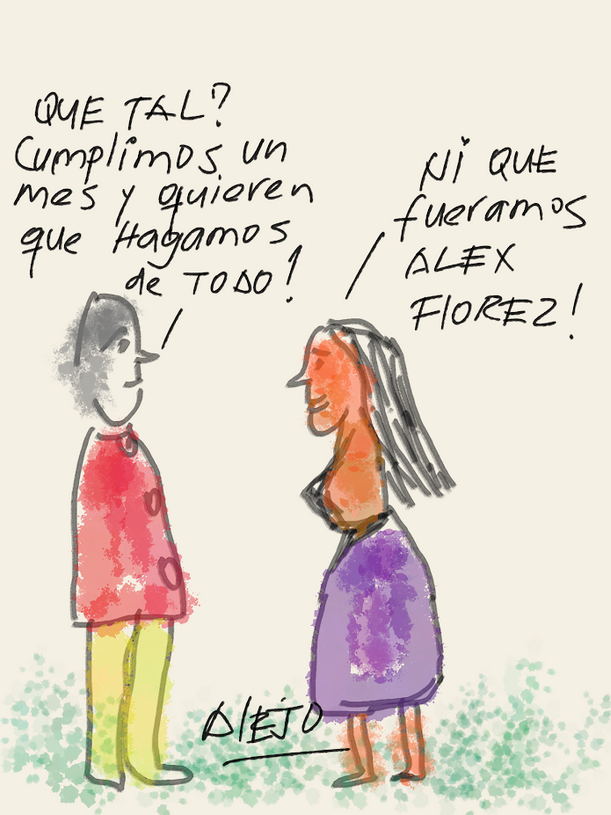 QUE TAL?
Cumplimos un
mes y quieren
que Hagamos
de TODO!
Ni QUE
fueramos
ALEX
FlOREZ!
AlEJO